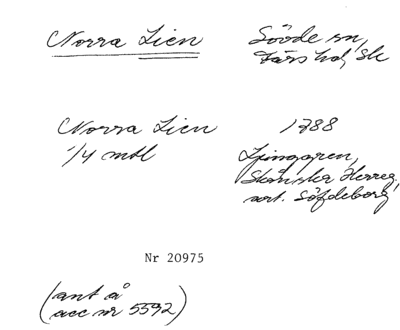 Norra Lien
Sövde sn,
Färs hd, Sk
Norra Lien
1/4 mtl
1788
Ljunggren,
Skånska Herreg.
art. Söfdeborg
Nr 20975
(ant å
acc nr 5592)